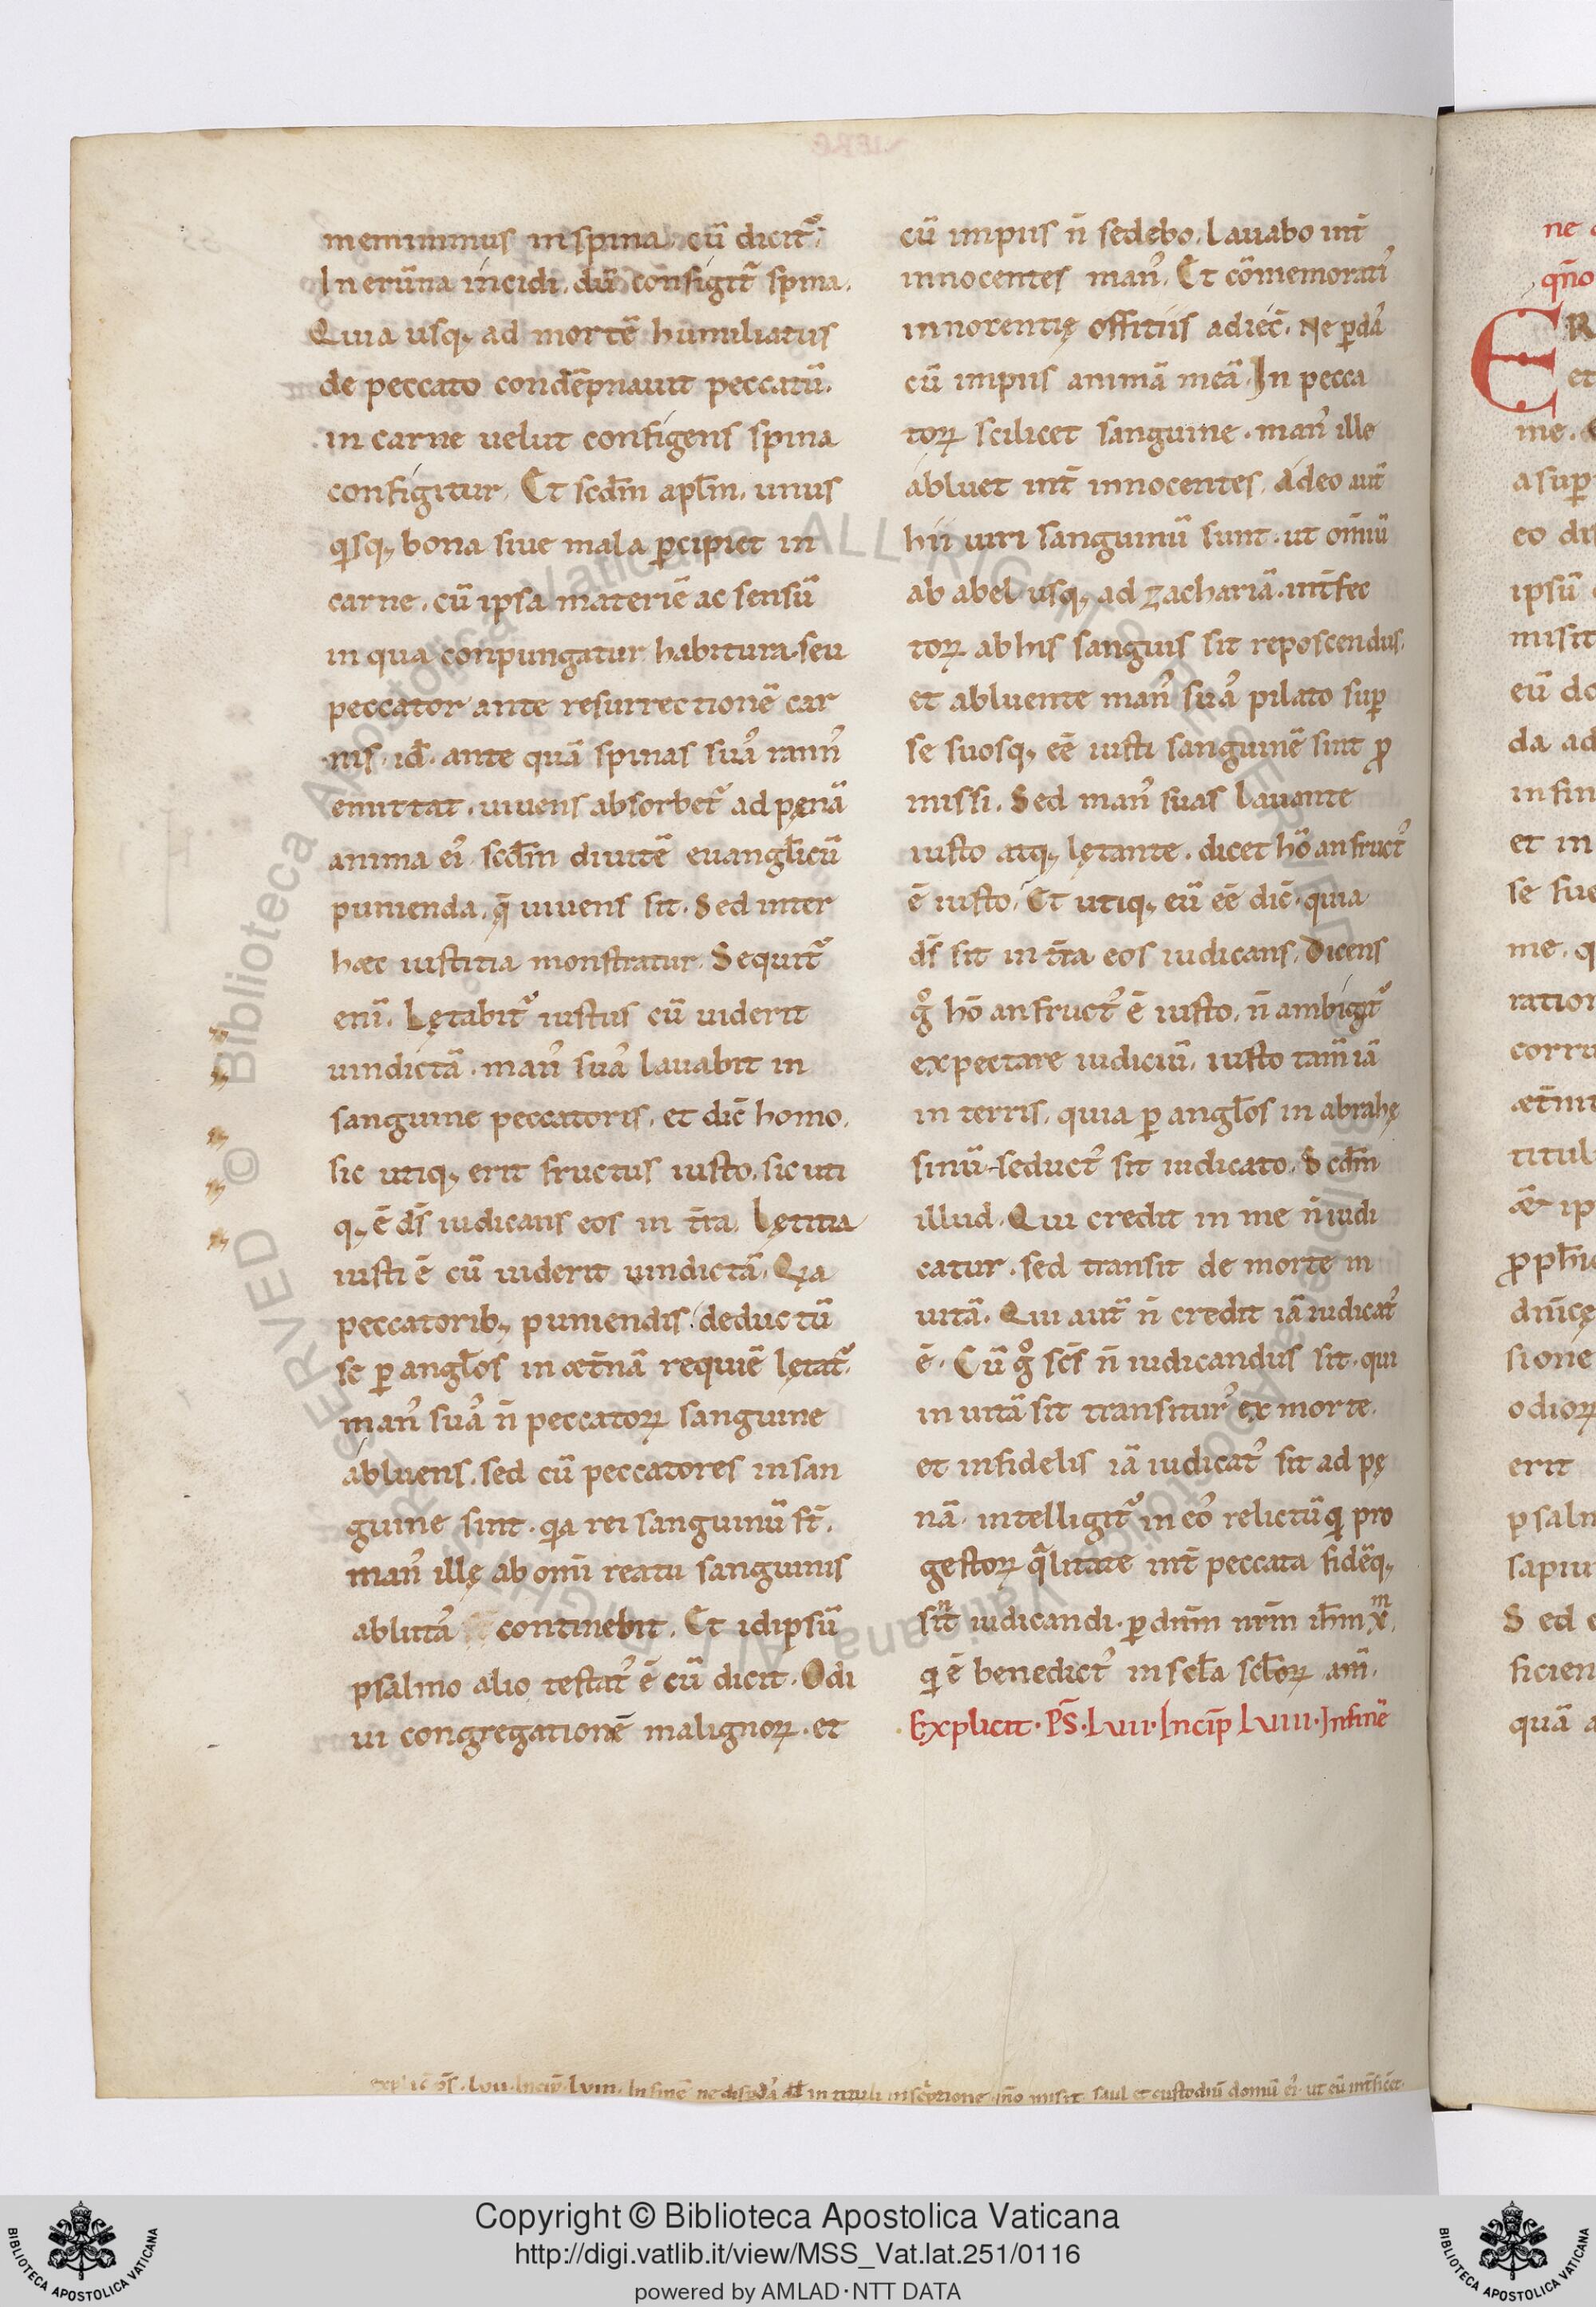 meminimus in spina cū dicit᷑.
In erūna incidi. dū configit᷑ spina.
Quia usq; ad mortē humiliatus
de peccato condēpnauit peccatū.
in carne uelut configens spina
configitur. Et scd̄m apl̄m. unus
qisq; bona siue mala ꝑcipiet in
carne. cū ipsa materiē ac sensū
in qua conpungatur habitura. seu
peccator ante resurrectionē car
nis. id̄. ante quā spinas suaꝰ ramnꝰ
emittat. uiuens absorbet᷑ ad pęnā
anima eiꝰ scd̄m diuitē euangl̄icū
punienda. q̄ uiuens sit. Sed inter
hæc iustitia monstratur. Sequit᷑
enī. Lętabit᷑ iustus cū uiderit
uindictā. manꝰ suaꝰ lauabit in
sanguine peccatoris. et dic̄ homo.
sic utiq; erit fructus iusto. sic uti
q; ē ds̄ iudicans eos in t̄ra. Lętitia
iusti ē cū uiderit uindictā. Qia
peccatorib; puniendis. deductū
se ꝑ angl̄os in æt̄nā requiē lętat᷑.
manꝰ suaꝰ n̄ peccatoꝝ sanguine
abluens. sed cū peccatores in san
guine sint. qia rei sanguinū st̄.
manꝰ illę ab omī reatu sanguinis
ablutaꝰ continebit. Et idipsū
psalmo alio testatꝰ ē cū dicit. Odi
ui congregationē malignoꝝ. et
cū impiis n̄ sedebo. Lauabo int̄
innocentes manꝰ. Et cōmemoratiꝰ
innocentię offitiis adiec̄. Ne ꝑdaꝰ
cū impiis animā meā. In pecca
toꝝ scilicet sanguine. manꝰ ille
abluet int̄ innocentes. Adeo aut̄
hii uiri sanguinū sunt. ut om̄iū
ab abel usq; ad zachariā. int̄fec
toꝝ ab his sanguis sit reposcendus.
et abluente manꝰ suaꝰ pilato suꝑ
se suosq; eē iusti sanguinē sint ꝓ
missi. Sed manꝰ suas lauante
iusto atq; lętante. dicet hō an fructꝰ
ē iusto. Et utiq; eū eē dic̄. quia
ds̄ sit in t̄ra eos iudicans. Dicens
gͦ hō an fructꝰ ē iusto. n̄ ambigit᷑
expectare iudiciū. iusto tam̄ iā
in terris. quia ꝑ angl̄os in abrahę
sinū seductꝰ sit iudicato. Scd̄m
illud. Qui credit in me n̄ iudi
catur. sed transit de morte in
uitā. Qui aut̄ n̄ credit iā iudicatꝰ
ē. Cū gͦ sc̄s n̄ iudicandus sit. qui
in uitā sit transiturꝰ ex morte.
et infidelis iā iudicatꝰ sit ad pę
nā. intelligit᷑ in eoꝰ relictū qi pro
gestoꝝ qalitate int̄ peccata fidēq;
sint iudicandi. ꝑ dnm̄ nrm̄ ih̄m xm.
qi ē benedictꝰ in scl̄a scl̄oꝝ am̄.
Explicit. PS̄. LVII. Incip̄ LVIII. In finē
explic̄ ps̄. LVII. Incip̄. LVIII. In finē ne disꝑdaꝰ dd̄ in tituli inscriptione qn̄o misit saul et custodiū domū eiꝰ ut eū int̄ficet.
ne
qn̄o
ER
et
me.
a suꝑ
eo
ipsū
misit
eū
da ad
in fin
et in
se
me. q
ration
corru
æt̄ni
titul
ip
ꝓph̄i
dn̄icę
sione
odioꝝ
erit
psalm
sapiu
Sed
ficien
quā
Copyright © Biblioteca Apostolica Vaticana
http://digi.vatlib.it/view/MSS_Vat.lat.251/0116
powered by AMLAD·NTT DATA
BIBLIOTECA APOSTOLICA VATICANA
BIBLIOTECA APOSTOLICA VATICANA